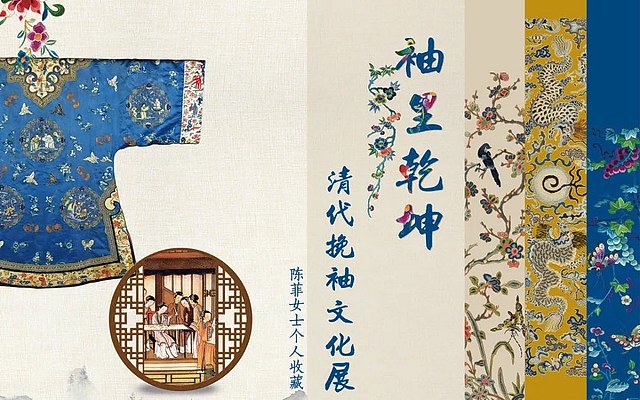 袖里乾坤
清代挽袖文化展
陈菲女士个人收藏